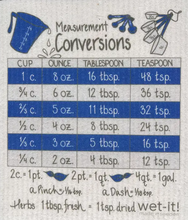 Measurement
Conversions
CUP OUNCE TABLESPOON TEASPOON
1 c. 8 oz. 16 tbsp. 48 tsp.
3/4 c. 6 oz. 12 tbsp. 36 tsp.
2/3 c. 5 oz. 11 tbsp. 32 tsp.
1/2 c. 4 oz. 8 tbsp. 24 tsp.
1/3 c. 3 oz. 5 tbsp. 16 tsp.
1/4 c. 2 oz. 4 tbsp. 12 tsp.
2c.=1pt. 2pt.=1qt. 4qt.=1gal.
a Pinch= tsp. a Dash= tsp.
Herbs 1 tbsp. fresh = 1 tsp. dried wet-it!